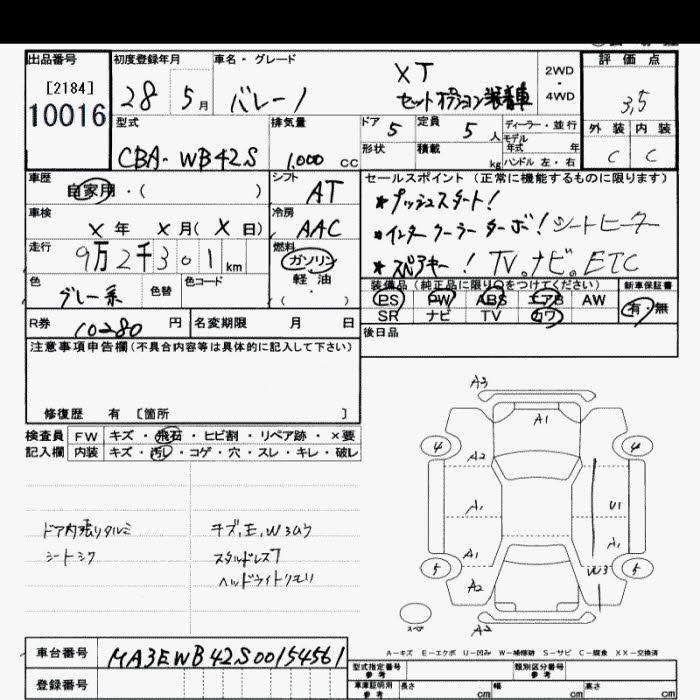 出品番号 初度登録年月 車名・グレード 評価点
[2184]
10016
28 5月 バレーノ XT 2WD・4WD 3,5
セットオプション装着車
型式 排気量 ドア 5 定員 5 人 ディーラー・並行 外装 内装
CBA-WB42S 1,000 cc 形状 積載 kg モデル年式 年 C C
ハンドル 左・右
車歴 シフト セールスポイント(正常に機能するものに限ります)
自家用・( ) AT *プッシュスタート!
車検 冷房
×年 ×月(×日) AAC *インタークーラーターボ!シートヒーター
走行 燃料
9万2千301km ガソリン *スペアキー! TV。ナビ。ETC
色 色替 色コード 軽油 装備品(純正品に限り○をつけてください) 新車保証書
グレー系 ・( ) PS PW ABS エアB AW 有・無
R券 10280 円 名変期限 月 日 SR ナビ TV カワ
注意事項申告欄(不具合内容等は具体的に記入して下さい) 後日品
修復歴 有 〔箇所 〕
検査員 FW キズ・飛石・ヒビ割・リペア跡・×要
記入欄 内装 キズ・汚レ・コゲ・穴・スレ・キレ・破レ
ドア内張りタルミ
シートシワ
キズ,E,W3ムラ
スタッドレス7
ヘッドライトクモリ
A3
A1
4 4
A2
A1 U1
A1
A1
5 5
W3
A2
スペア
A2
A-キズ E-エクボ U-凹み W-補修跡 S-サビ C-腐食 XX-交換済
車台番号 MA3EWB42S00154561
登録番号
型式指定番号 参考 類別区分番号 参考
車庫証明用 参考 長さ cm 幅 cm 高さ cm